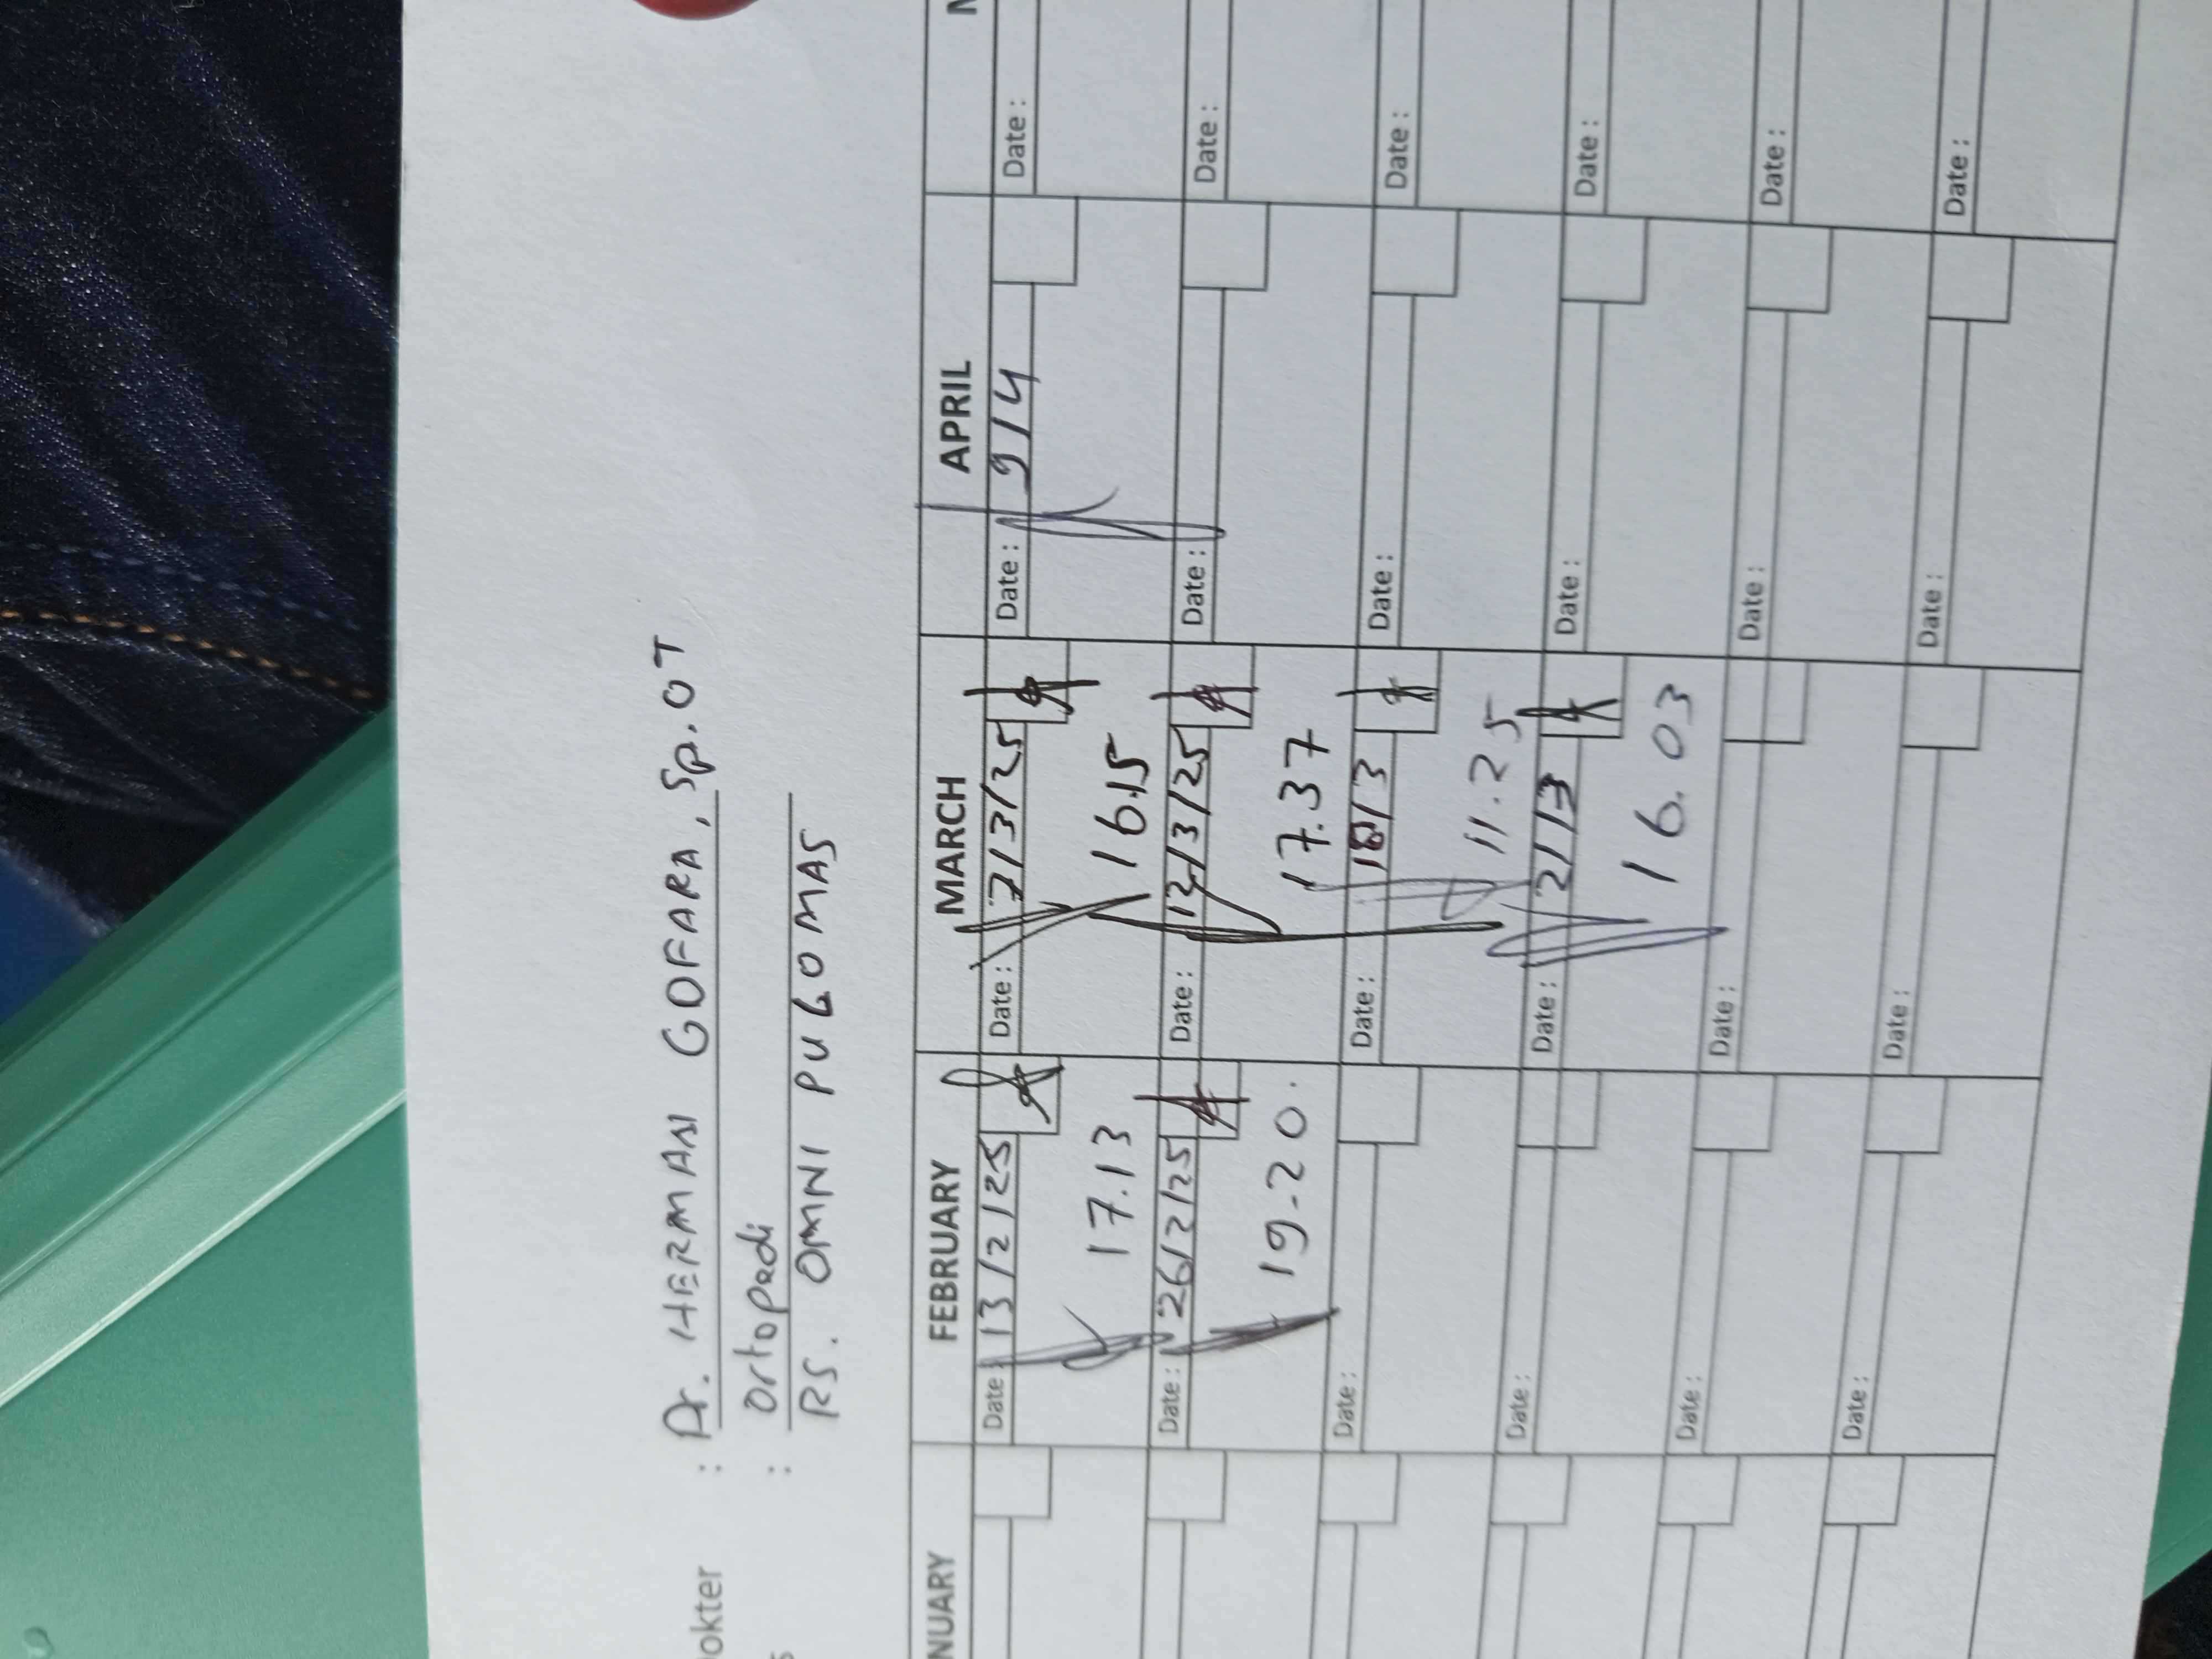 okter : Dr. HERMAN GOFARA, Sp.OT
: Ortopedi
RS. OMNI PULOMAS
NUARY FEBRUARY MARCH APRIL
Date : 13/2/25 Date : 7/3/25 Date : 9/4 Date :
17.13 16.15
Date : 26/2/25 Date : 12/3/25 Date : Date :
19.20. 17.37
Date : Date : 18/3 Date : Date :
11.25
Date : Date : 21/3 Date : Date :
16.03
Date : Date : Date : Date :
Date : Date : Date : Date :